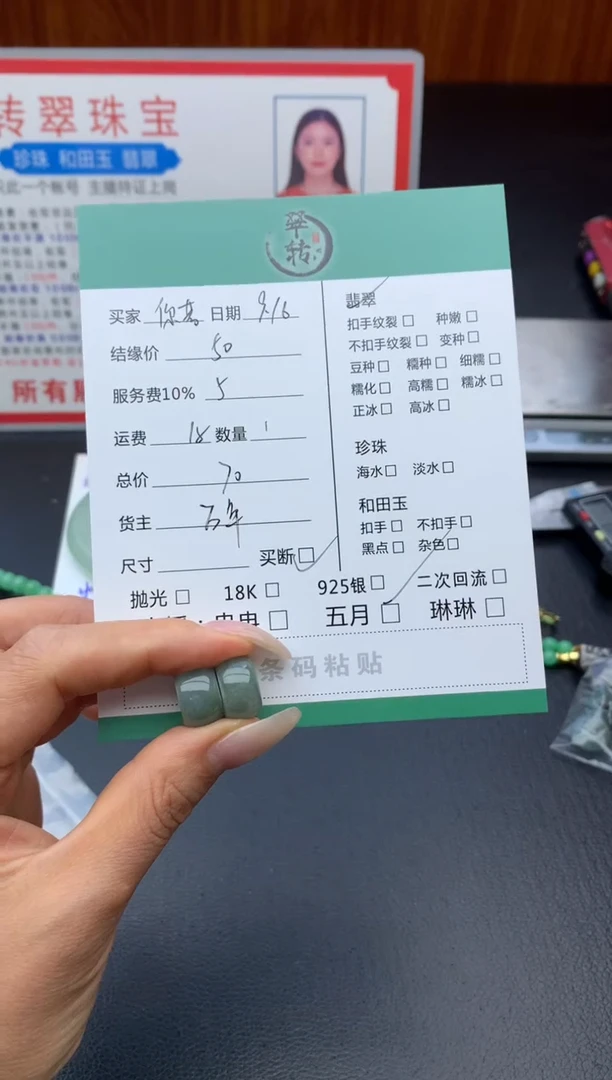 转翠珠宝
珍珠 和田玉 翡翠
只此一个账号 主播持证上岗
所有
翠转
买家 日期 9/16
结缘价 50
服务费10% 5
运费 15 数量 1
总价 70
货主
尺寸 买断□
翡翠
扣手纹裂□ 种嫩□
不扣手纹裂□ 变种□
豆种□ 糯种□ 细糯□
糯化□ 高糯□ 糯冰□
正冰□ 高冰□
珍珠
海水□ 淡水□
和田玉
扣手□ 不扣手□
黑点□ 杂色□
抛光□ 18K□ 925银□ 二次回流□
五月□ 琳琳□
条码粘贴